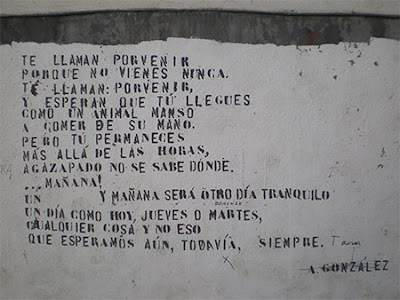 TE LLAMAN PORVENIR
PORQUE NO VIENES NUNCA.
TE LLAMAN: PORVENIR,
Y ESPERAN QUE TÚ LLEGUES
COMO UN ANIMAL MANSO
A COMER DE SU MANO.
PERO TÚ PERMANECES
MÁS ALLÁ DE LAS HORAS,
AGAZAPADO NO SE SABE DÓNDE.
...MAÑANA!
UN Y MAÑANA SERÁ OTRO DÍA TRANQUILO
UN DÍA COMO HOY, JUEVES O MARTES,
CUALQUIER COSA Y NO ESO
QUE ESPERAMOS AÚN, TODAVÍA, SIEMPRE.
A. GONZÁLEZ